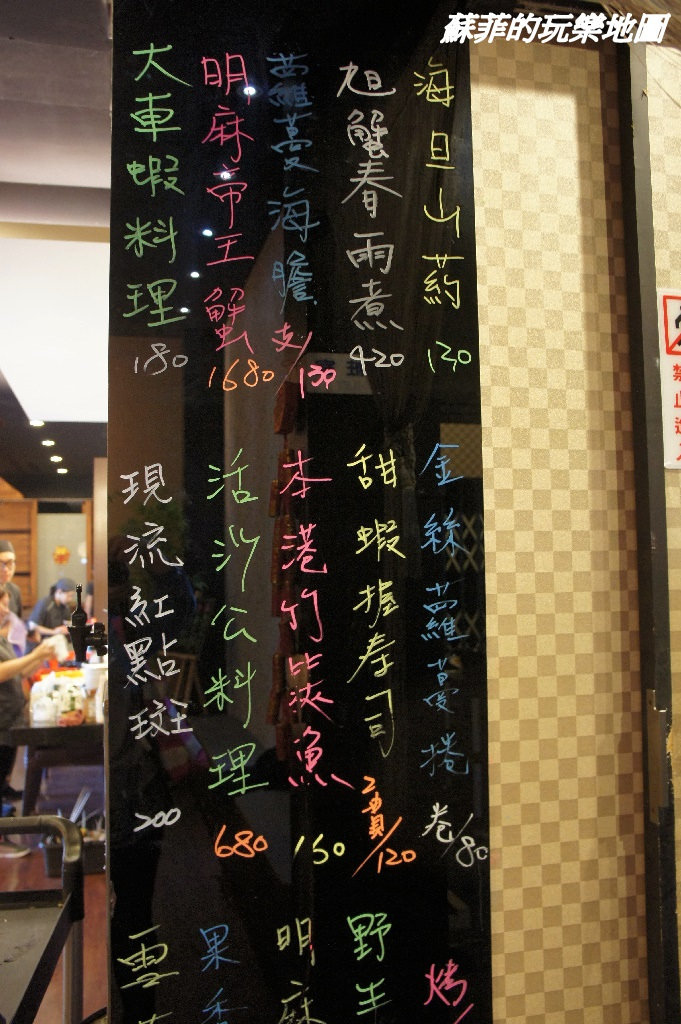 蘇菲的玩樂地圖
海旦山葯 130
旭蟹春雨煮 420
蘿蔓海膽 支/130
明麻帝王蟹 1680
大車蝦料理 180
金絲蘿蔓捲 卷/80
甜蝦握寿司 2貫/120
本港竹筴魚 150
活沙公料理 680
現流紅點斑 200
烤
野生
明麻
果香
雲
禁止進入